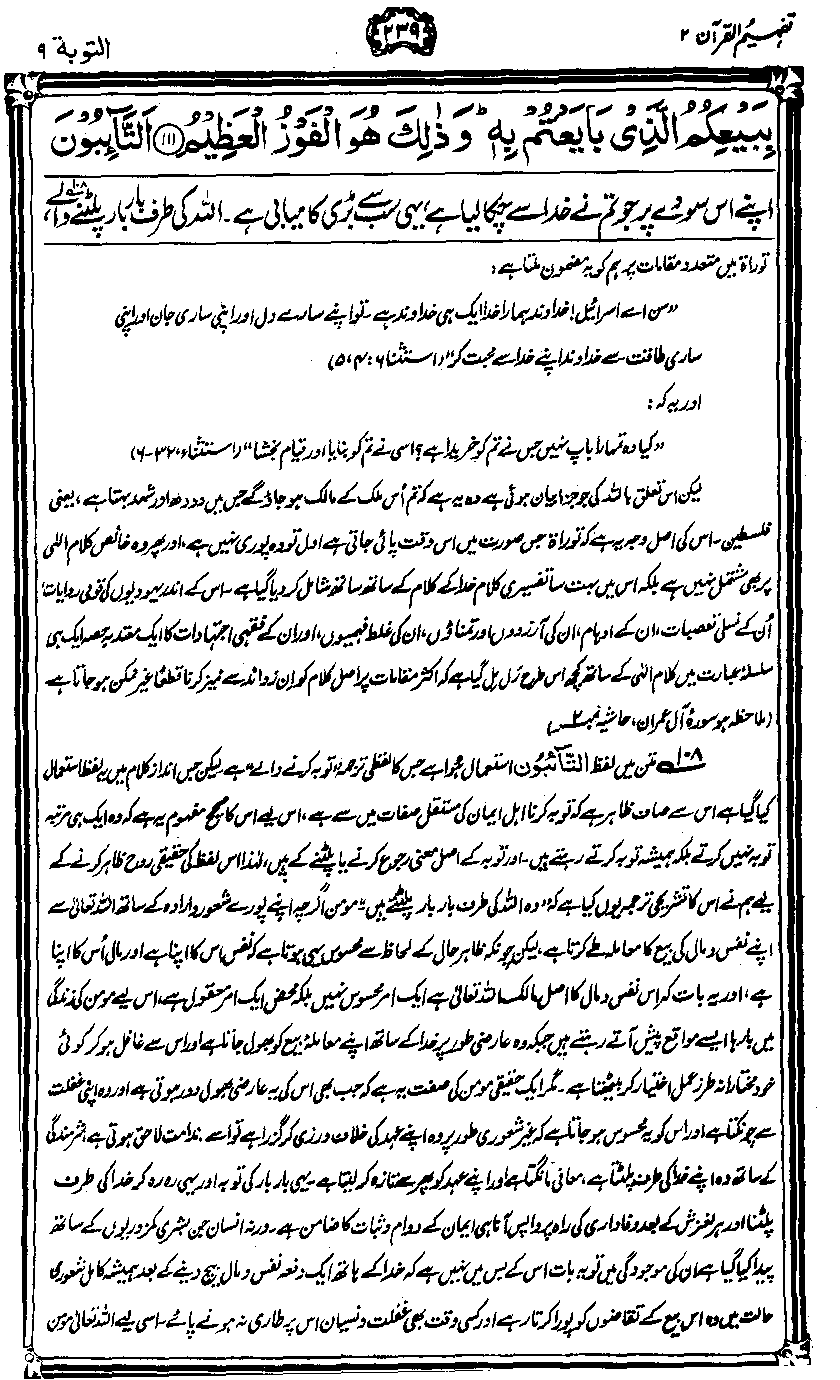 تفہیم القرآن ۲
۲۳۹
التوبة ۹
بِبَيْعِكُمُ الَّذِىْ بَايَعْتُمْ بِهٖ ؕ وَ ذٰلِكَ هُوَ الْفَوْزُ الْعَظِيْمُ ﴿۱۱۱﴾ اَلتَّآئِبُوْنَ
اپنے اس سودے پر جو تم نے خدا سے چکا لیا ہے، یہی سب سے بڑی کامیابی ہے۔ اللہ کی طرف بار بار پلٹنے والے،۱۰۸
توراۃ میں متعدد مقامات پر ہم کو یہ مضمون ملتا ہے:
”سن اے اسرائیل! خداوند ہمارا خدا ایک ہی خداوند ہے۔ تو اپنے سارے دل اور اپنی ساری جان اور اپنی
ساری طاقت سے خداوند اپنے خدا سے محبت کر“ (استثنا ۶: ۴، ۵)
اور یہ کہ:
”کیا وہ تمہارا باپ نہیں جس نے تم کو خریدا ہے؟ اسی نے تم کو بنایا اور قیام بخشا“ (استثناء، ۳۲-۶)
لیکن اس تعلق باللہ کی جو جزا بیان ہوئی ہے وہ یہ ہے کہ تم اُس ملک کے مالک ہو جاؤ گے جس میں دودھ اور شہد بہتا ہے، یعنی
فلسطین۔ اس کی اصل وجہ یہ ہے کہ توراۃ جس صورت میں اس وقت پائی جاتی ہے اول تو وہ پوری نہیں ہے، اور پھر وہ خالص کلام الٰہی
پر بھی مشتمل نہیں ہے بلکہ اس میں بہت سا تفسیری کلام خدا کے کلام کے ساتھ ساتھ شامل کر دیا گیا ہے۔ اس کے اندر یہودیوں کی قومی روایات،
اُن کے نسلی تعصبات، ان کے اوہام، ان کی آرزوؤں اور تمناؤں، ان کی غلط فہمیوں، اور ان کے فقہی اجتہادات کا ایک معتدبہ حصہ ایک ہی
سلسلۂ عبارت میں کلام الٰہی کے ساتھ کچھ اس طرح رَل مِل گیا ہے کہ اکثر مقامات پر اصل کلام کو اِن زوائد سے ممیز کرنا قطعًا غیر ممکن ہو جاتا ہے
(ملاحظہ ہو سورۂ آل عمران، حاشیہ نمبر ۲)
۱۰۸ متن میں لفظ التَّآئِبُوْنَ استعمال ہوا ہے جس کا لفظی ترجمہ ”توبہ کرنے والے“ ہے لیکن جس انداز کلام میں یہ لفظ استعمال
کیا گیا ہے اس سے صاف ظاہر ہے کہ توبہ کرنا اہل ایمان کی مستقل صفات میں سے ہے، اس لیے اس کا صحیح مفہوم یہ ہے کہ وہ ایک ہی مرتبہ
توبہ نہیں کرتے بلکہ ہمیشہ توبہ کرتے رہتے ہیں۔ اور توبہ کے اصل معنی رجوع کرنے یا پلٹنے کے ہیں، لہٰذا اس لفظ کی حقیقی روح ظاہر کرنے کے
لیے ہم نے اس کا تشریحی ترجمہ یوں کیا ہے کہ ”وہ اللہ کی طرف بار بار پلٹتے ہیں“۔ مومن اگرچہ اپنے پورے شعور و ارادہ کے ساتھ اللہ تعالیٰ سے
اپنے نفس و مال کی بیع کا معاملہ طے کرتا ہے، لیکن چونکہ ظاہر حال کے لحاظ سے محسوس یہی ہوتا ہے کہ نفس اس کا اپنا ہے اور مال اُس کا اپنا
ہے، اور یہ بات کہ اس نفس و مال کا اصل مالک اللہ تعالیٰ ہے ایک امر محسوس نہیں بلکہ محض ایک امر معقول ہے، اس لیے مومن کی زندگی
میں بارہا ایسے مواقع پیش آتے رہتے ہیں جبکہ وہ عارضی طور پر خدا کے ساتھ اپنے معاملۂ بیع کو بھول جاتا ہے اور اس سے غافل ہو کر کوئی
خود مختارانہ طرز عمل اختیار کر بیٹھتا ہے۔ مگر ایک حقیقی مومن کی صفت یہ ہے کہ جب بھی اس کی یہ عارضی بھول دور ہوتی ہے اور وہ اپنی غفلت
سے چونکتا ہے اور اس کو یہ محسوس ہو جاتا ہے کہ غیر شعوری طور پر وہ اپنے عہد کی خلاف ورزی کر گزرا ہے تو اسے ندامت لاحق ہوتی ہے، شرمندگی
کے ساتھ وہ اپنے خدا کی طرف پلٹتا ہے، معافی مانگتا ہے اور اپنے عہد کو پھر سے تازہ کر لیتا ہے۔ یہی بار بار کی توبہ اور یہی رہ رہ کر خدا کی طرف
پلٹنا اور ہر لغزش کے بعد وفاداری کی راہ پر واپس آنا ہی ایمان کے دوام و ثبات کا ضامن ہے۔ ورنہ انسان جن بشری کمزوریوں کے ساتھ
پیدا کیا گیا ہے ان کی موجودگی میں تو یہ بات اس کے بس میں نہیں ہے کہ خدا کے ہاتھ ایک دفعہ نفس و مال بیچ دینے کے بعد ہمیشہ کامل شعوری
حالت میں وہ اس بیع کے تقاضوں کو پورا کرتا رہے اور کسی وقت بھی غفلت و نسیان اس پر طاری نہ ہونے پائے۔ اسی لیے اللہ تعالیٰ مومن